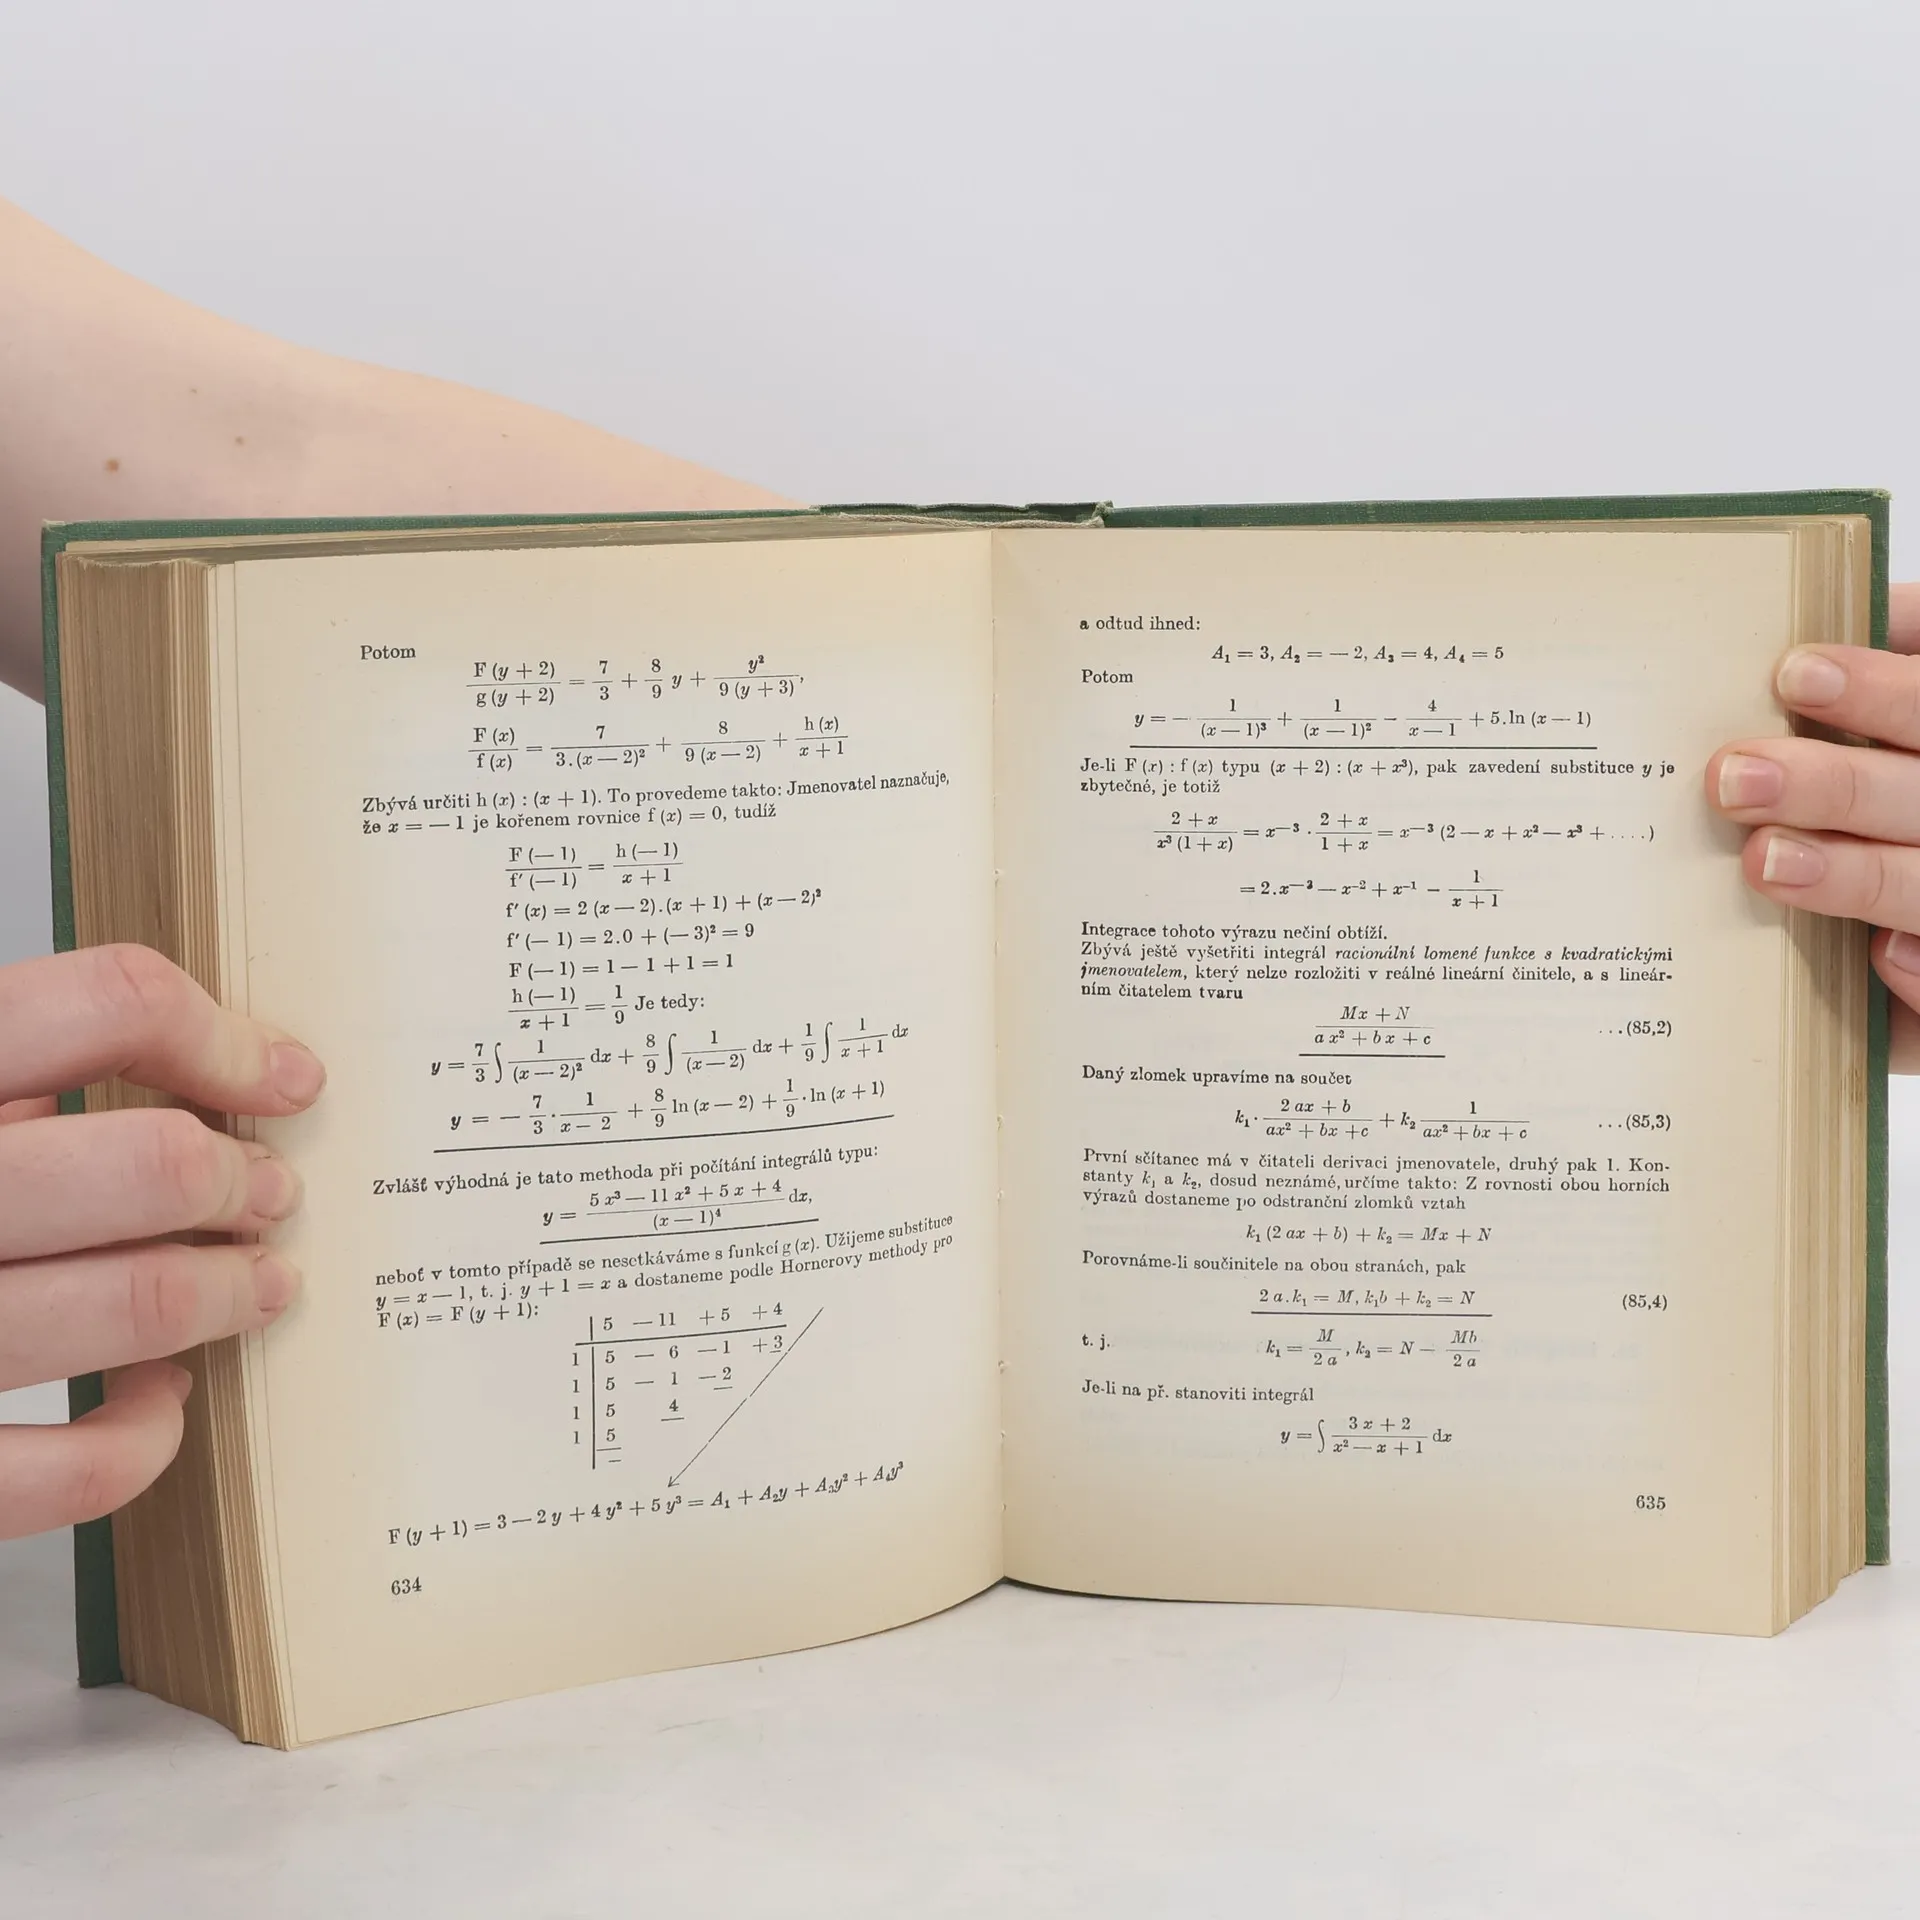 Potom
F (y + 2) / g (y + 2) = 7/3 + 8/9 y + y² / 9 (y + 3),
F (x) / f (x) = 7 / 3.(x — 2)² + 8 / 9 (x — 2) + h (x) / x + 1
Zbývá určiti h (x) : (x + 1). To provedeme takto: Jmenovatel naznačuje,
že x = — 1 je kořenem rovnice f (x) = 0, tudíž
F (— 1) / f′ (— 1) = h (— 1) / x + 1
f′ (x) = 2 (x — 2).(x + 1) + (x — 2)²
f′ (— 1) = 2.0 + (— 3)² = 9
F (— 1) = 1 — 1 + 1 = 1
h (— 1) / x + 1 = 1/9 Je tedy:
y = 7/3 ∫ 1 / (x — 2)² dx + 8/9 ∫ 1 / (x — 2) dx + 1/9 ∫ 1 / x + 1 dx
y = — 7/3 . 1 / x — 2 + 8/9 ln (x — 2) + 1/9 . ln (x + 1)
Zvlášť výhodná je tato methoda při počítání integrálů typu:
y = 5 x³ — 11 x² + 5 x + 4 / (x — 1)⁴ dx,
neboť v tomto případě se nesetkáváme s funkcí g (x). Užijeme substituce
y = x — 1, t. j. y + 1 = x a dostaneme podle Hornerovy methody pro
F (x) = F (y + 1):
| 5 — 11 + 5 + 4
1 | 5 — 6 — 1 + 3
1 | 5 — 1 — 2
1 | 5 4
1 | 5
F (y + 1) = 3 — 2 y + 4 y² + 5 y³ = A₁ + A₂y + A₃y² + A₄y³
634
a odtud ihned:
A₁ = 3, A₂ = — 2, A₃ = 4, A₄ = 5
Potom
y = — 1 / (x — 1)³ + 1 / (x — 1)² — 4 / x — 1 + 5.ln (x — 1)
Je-li F (x) : f (x) typu (x + 2) : (x + x³), pak zavedení substituce y je
zbytečné, je totiž
2 + x / x³ (1 + x) = x—³ . 2 + x / 1 + x = x—³ (2 — x + x² — x³ + ....)
= 2.x—³ — x—² + x—¹ — 1 / x + 1
Integrace tohoto výrazu nečiní obtíží.
Zbývá ještě vyšetřiti integrál racionální lomené funkce s kvadratickými
jmenovatelem, který nelze rozložiti v reálné lineární činitele, a s lineár-
ním čitatelem tvaru
Mx + N / a x² + b x + c ...(85,2)
Daný zlomek upravíme na součet
k₁ . 2 ax + b / ax² + bx + c + k₂ 1 / ax² + bx + c ...(85,3)
První sčítanec má v čitateli derivaci jmenovatele, druhý pak 1. Kon-
stanty k₁ a k₂, dosud neznámé, určíme takto: Z rovnosti obou horních
výrazů dostaneme po odstranění zlomků vztah
k₁ (2 ax + b) + k₂ = Mx + N
Porovnáme-li součinitele na obou stranách, pak
2 a.k₁ = M, k₁b + k₂ = N (85,4)
t. j. k₁ = M / 2 a , k₂ = N — Mb / 2 a
Je-li na př. stanoviti integrál
y = ∫ 3 x + 2 / x² — x + 1 dx
635